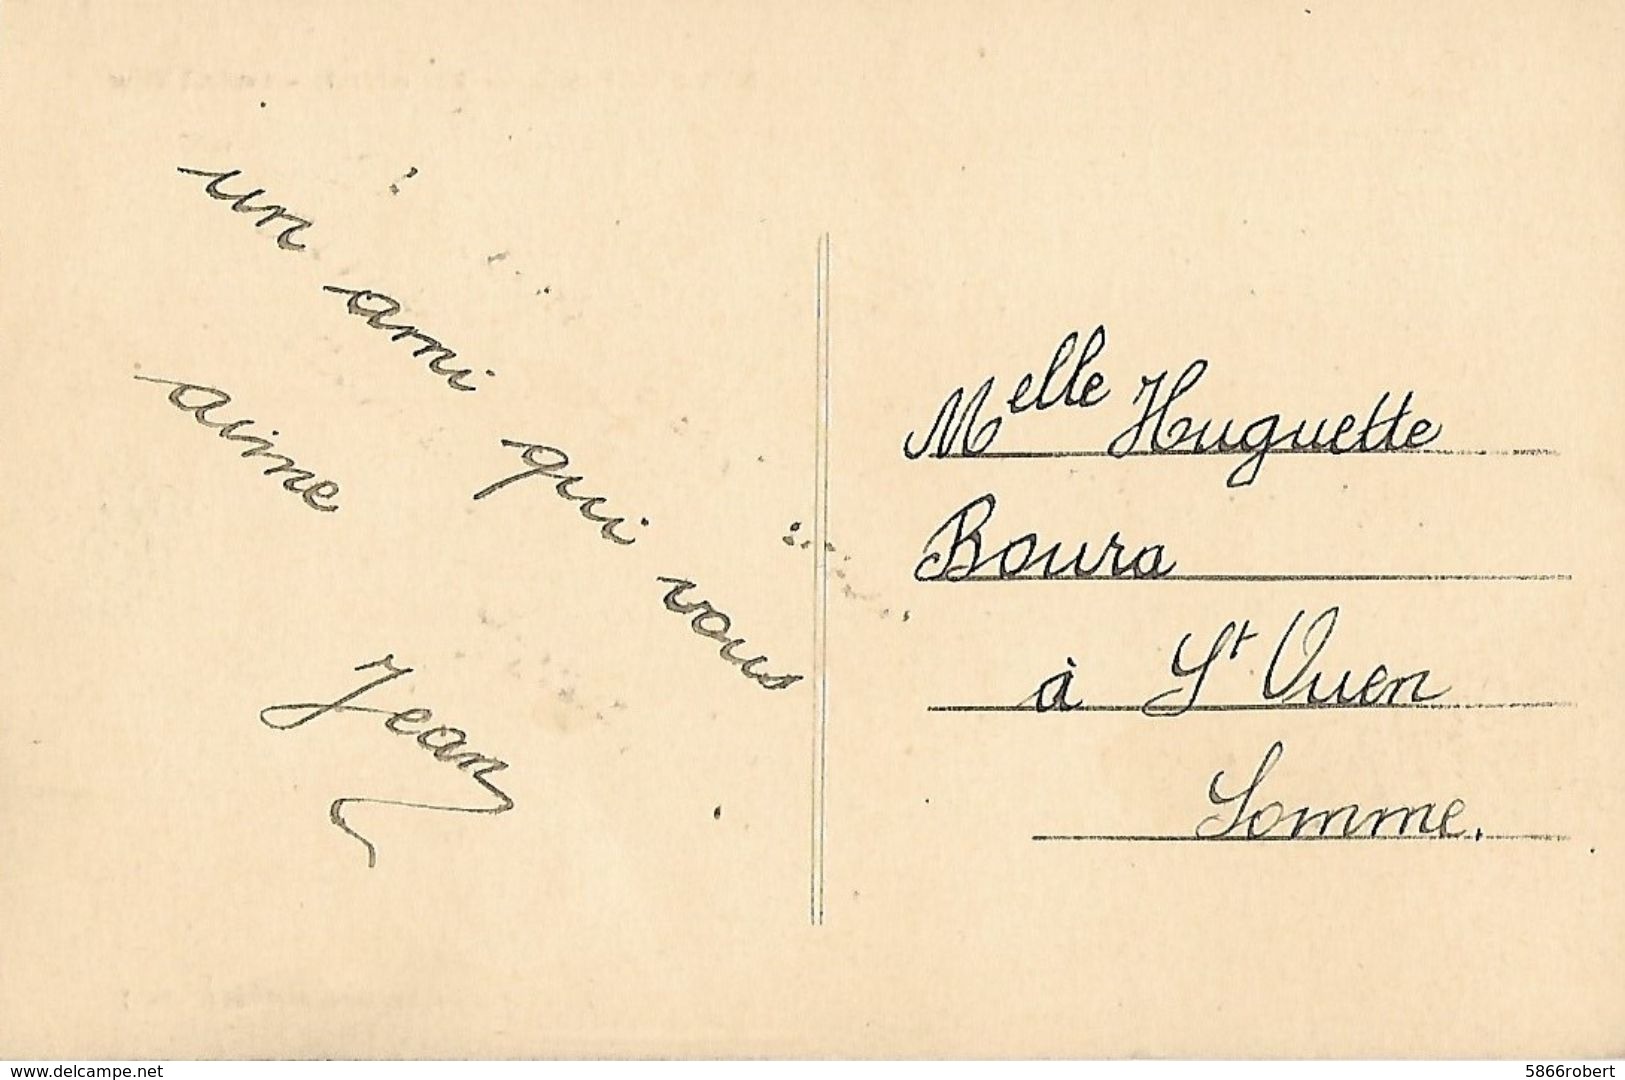 un ami qui vous
aime
Jean
Melle Huguette
Boura
à St Ouen
Somme.
www.delcampe.net
5866robert